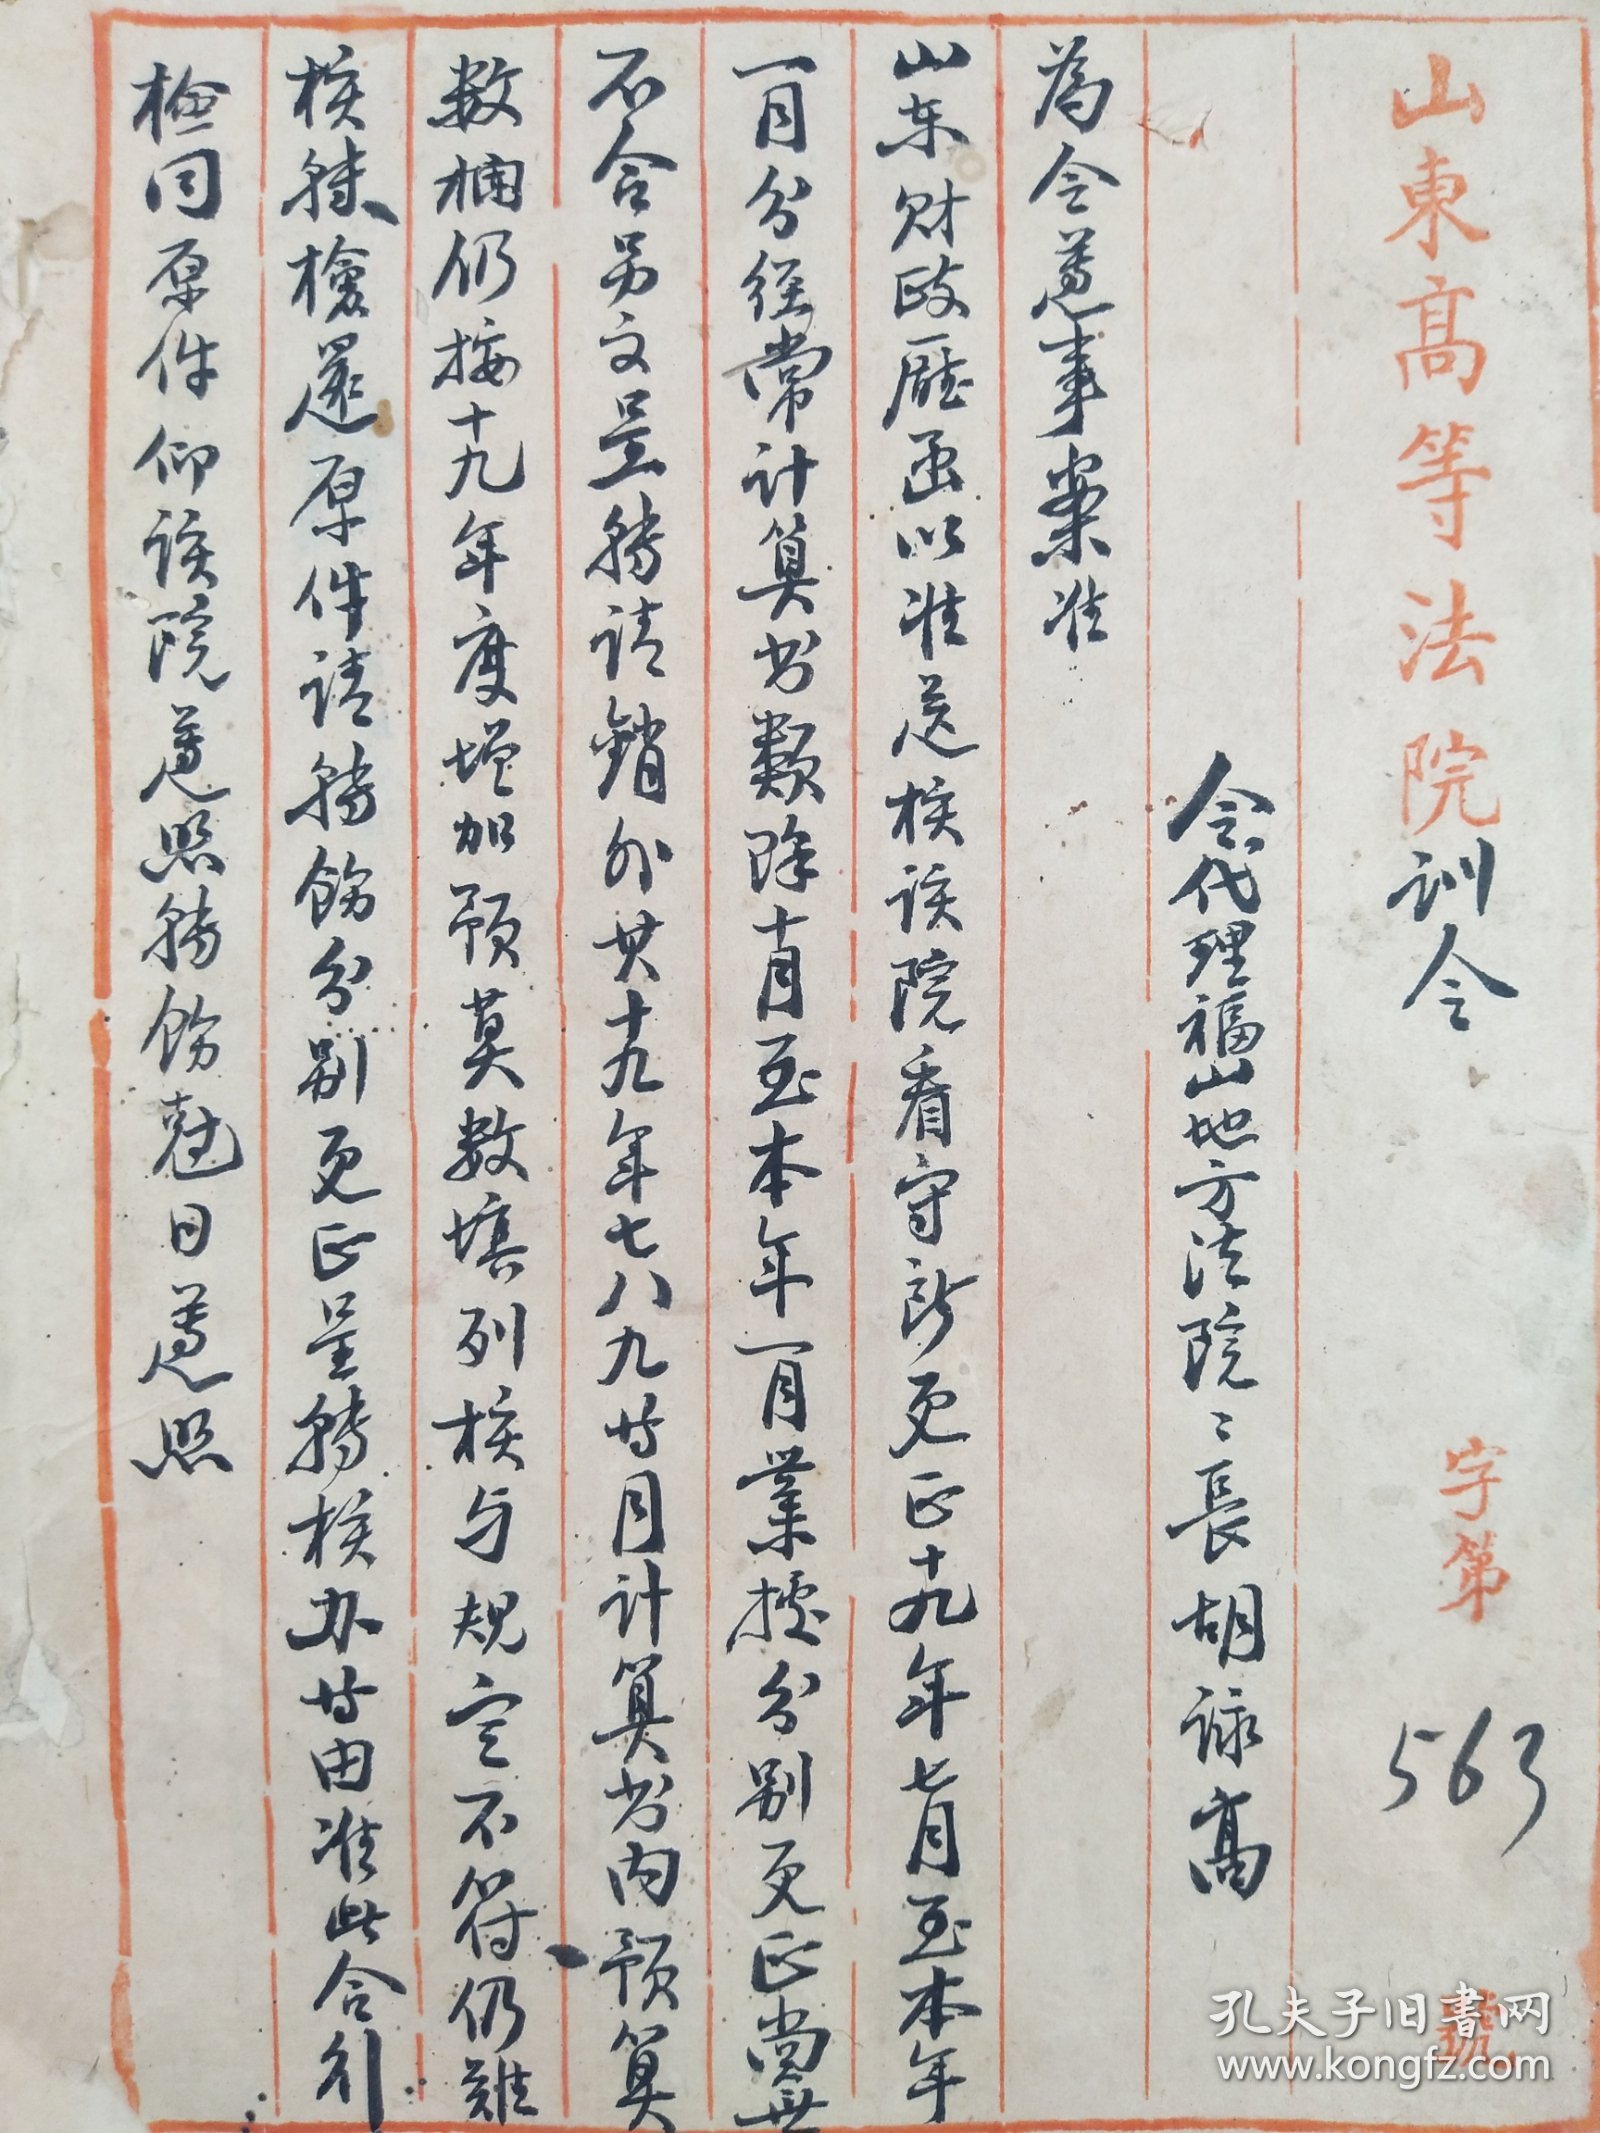 山東高等法院訓令 字第563號
令代理福山地方法院〻長胡詠高
為令遵事案准
山东財政廳函以准送核該院看守所更正十九年七月至本年
一月分經常計算书類除十月至本年一月業據分别更正尚無
不合另文呈轉請銷外其十九年七八九廿月计算书内預算
数欄仍按十九年度增加預算数填列核与規定不符仍難
核轉檢還原件請轉飭分别更正呈轉核办廿由准此合行
檢同原件仰該院遵照轉飭剋日遵照
孔夫子旧書网
www.kongfz.com